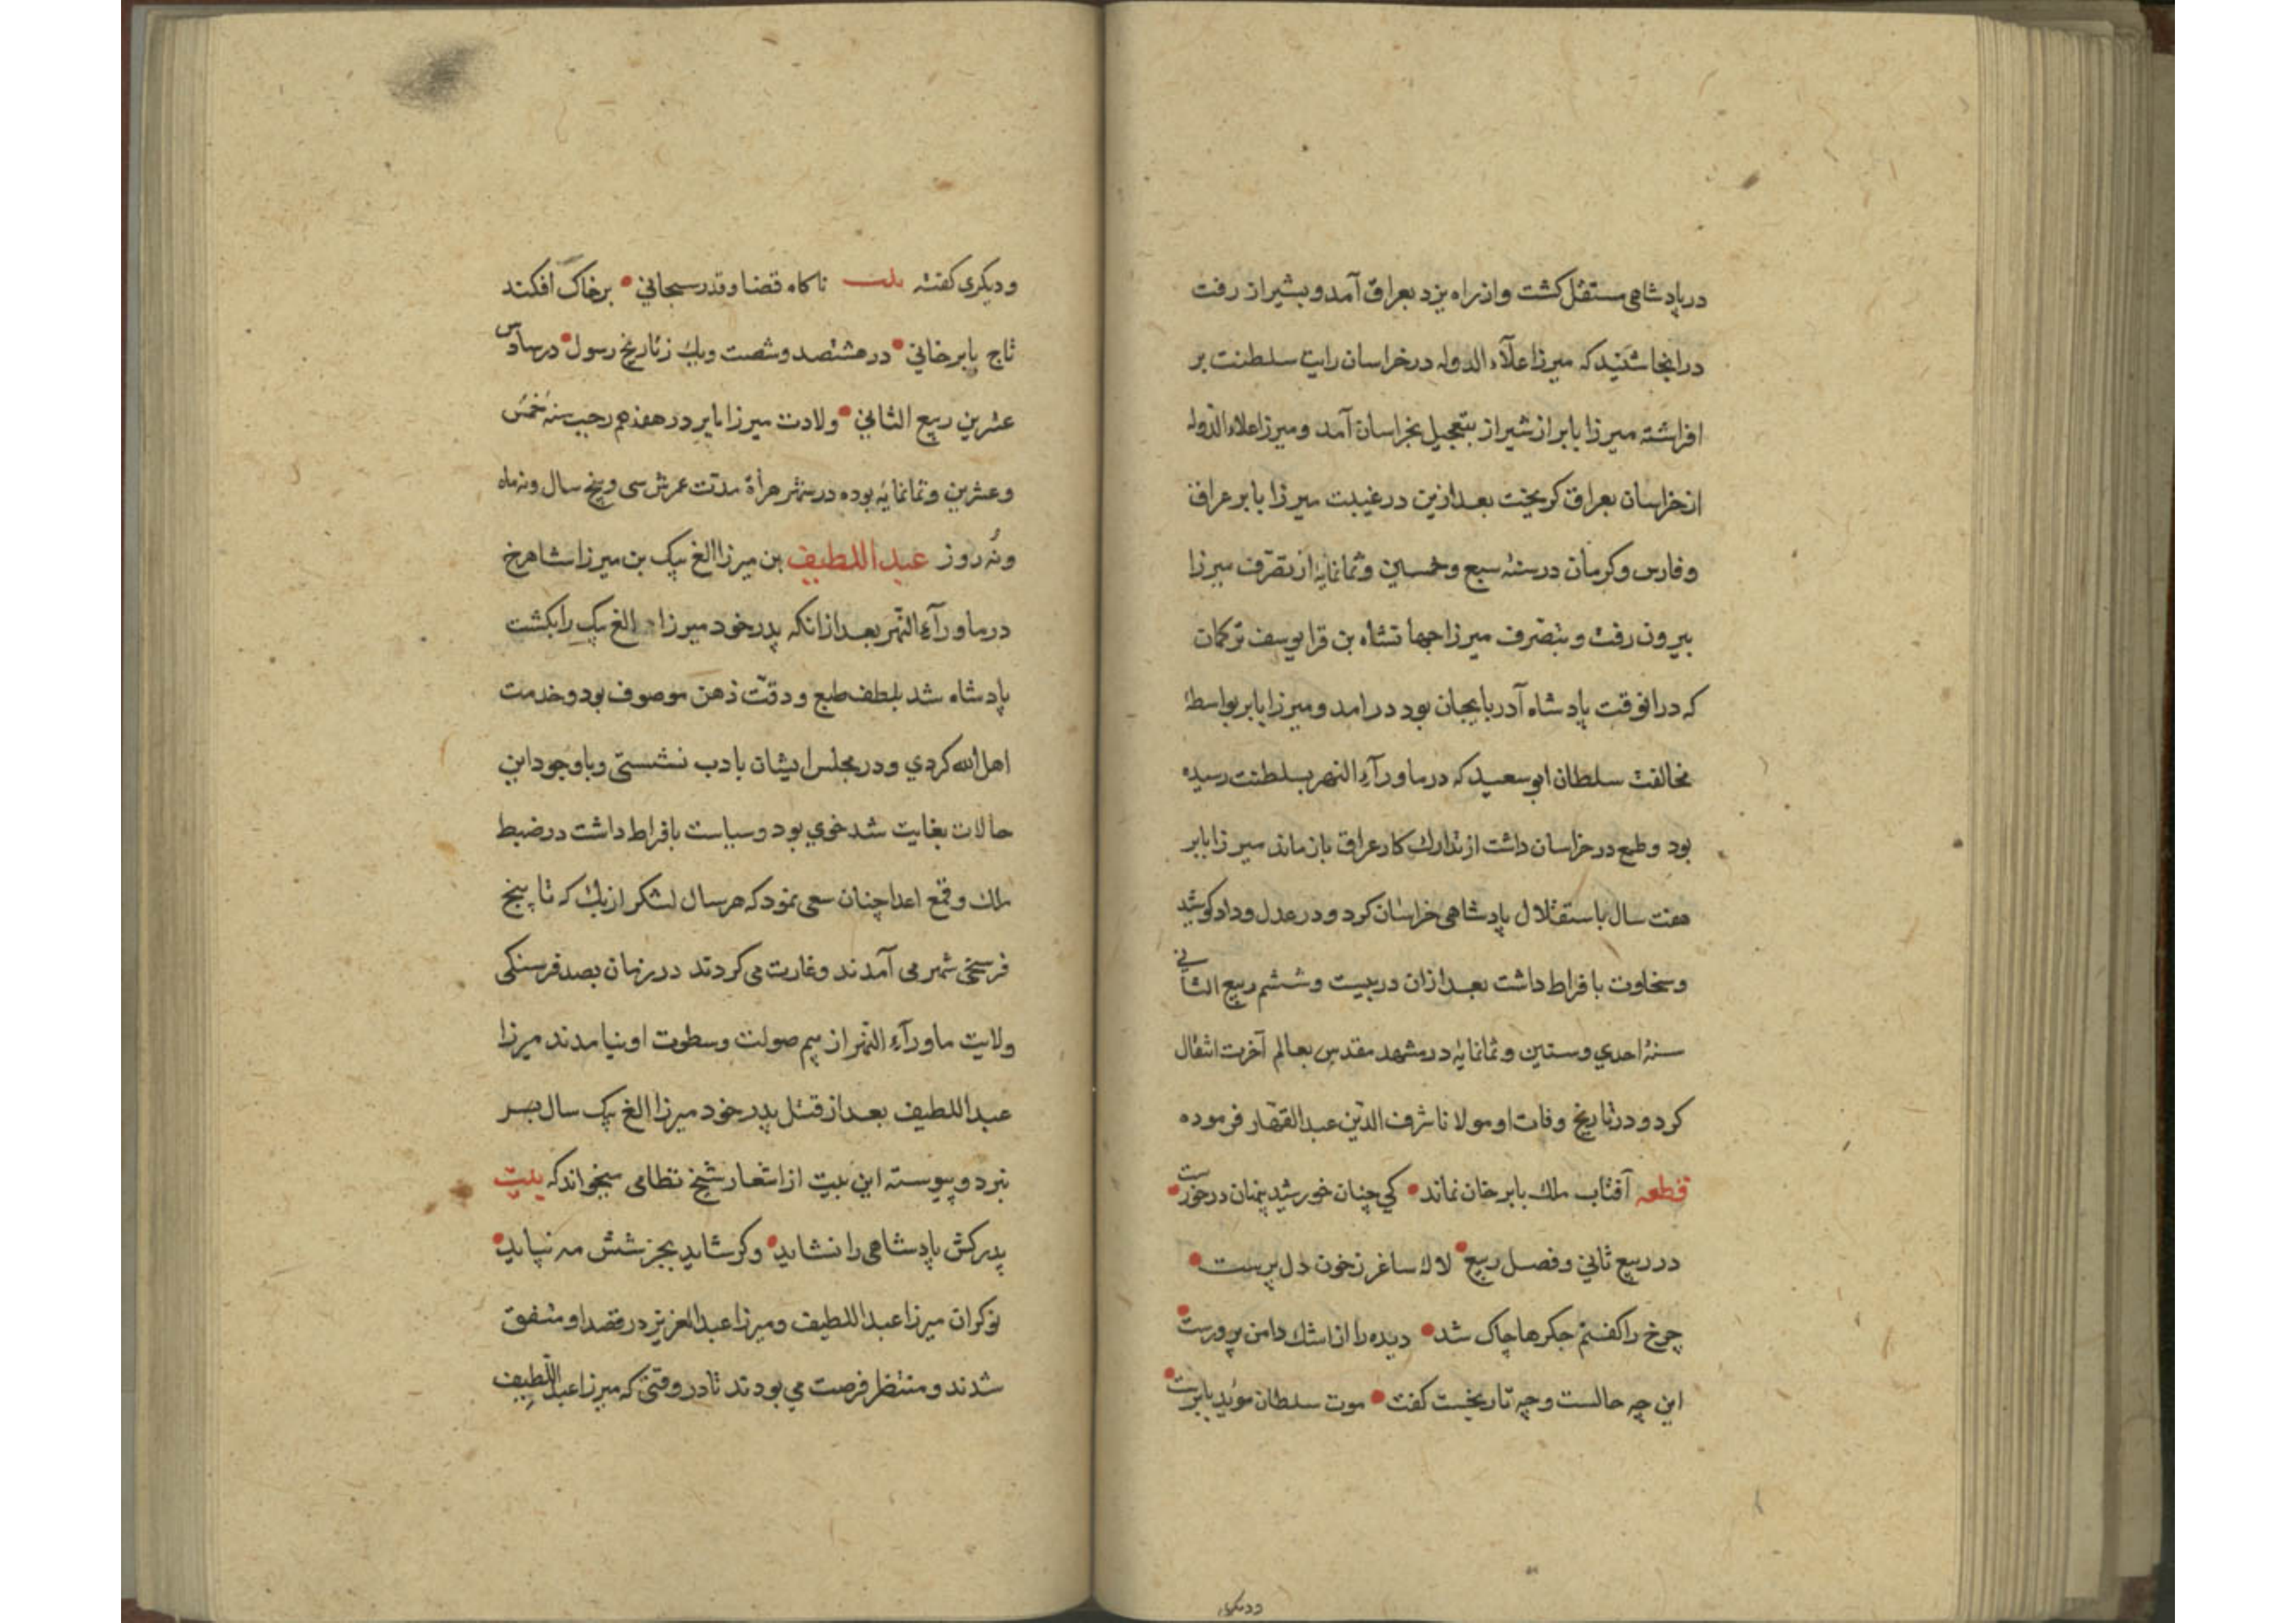 در پادشاهی مستقل کشت و از راه یزد بعراق آمد و بشیراز رفت
در انجا شنید که میرزا علآء الدوله در خراسان رایت سلطنت بر
افراشته میرزا بابر از شیراز بتعجیل بخراسان آمد و میرزا علاء الدوله
از خراسان بعراق کریخت بعد ازین در غیبت میرزا بابر عراق
و فارس و کرمان در سنهٔ سبع و خمسین و ثمانمایه از تصرف میرزا
بیرون رفت و بتصرف میرزا جهانشاه بن قرا یوسف ترکمان
که در انوقت پادشاه آدربایجان بود در امد و میرزا بابر بواسطهٔ
مخالفت سلطان ابو سعید که در ماورآء النهر بسلطنت رسیده
بود و طمع در خراسان داشت از تدارک کار عراق باز ماند میرزا بابر
هفت سال باستقلال پادشاهی خراسان کرد و در عدل و داد کوشید
و سخاوت با فراط داشت بعد ازان در بیست و ششم ربیع الثانی
سنهٔ احدی و ستین و ثمانمایه در مشهد مقدس بعالم آخرت انتقال
کرد و در تاریخ وفات او مولانا شرف الدین عبد القهار فرموده
قطعه آفتاب ملک بابر خان نماند کی چنان خورشید پنهان در خورست
در ربیع ثانی و فصل ربیع لاله ساغر ز خون دل پرست
چرخ را کفتم جکرها چاک شد دیده را از اشک دامن پر ورست
این چه حالست و چه تاریخست کفت موت سلطان موید بابرست
ودیکری
ودیکری کفته بیت ناکاه قضا و قدر سبحانی بر خاک افکند
تاج بابر خانی در هشتصد و شصت و یک ز تاریخ رسول در سادس
عشرین ربیع الثانی ولادت میرزا بابر در هفدهم رجب سنهٔ خمس
و عشرین و ثمانمایه بوده در شهر هراة مدت عمرش سی و پنج سال و نه ماه
و نه روز عبد اللطیف بن میرزا الغ بیک بن میرزا شاهرخ
در ماورآء النهر بعد ازانکه پدر خود میرزا الغ بیک را بکشت
پادشاه شد بلطف طبع و دقت ذهن موصوف بود و خدمت
اهل الله کردی و در مجلس ایشان بادب نشستی و با وجود این
حالات بغایت تند خوی بود و سیاست بافراط داشت در ضبط
ملک و قمع اعدا چنان سعی نمود که هر سال لشکر ازبک که تا پنج
فرسخی شهر می آمدند و غارت می کردند در زمان بصد فرسنکی
ولایت ماورآء النهر از بیم صولت و سطوت او نیامدند میرزا
عبد اللطیف بعد از قتل پدر خود میرزا الغ بیک سال بسر
نبرد و پیوسته این بیت از اشعار شیخ نظامی میخواند که بیت
پدر کش پادشاهی را نشاید وکر شاید بجز شش مه نپاید
نوکران میرزا عبد اللطیف و میرزا عبد العزیز در قصد او متفق
شدند و منتظر فرصت می بودند تا در وقتی که میرزا عبد اللطیف